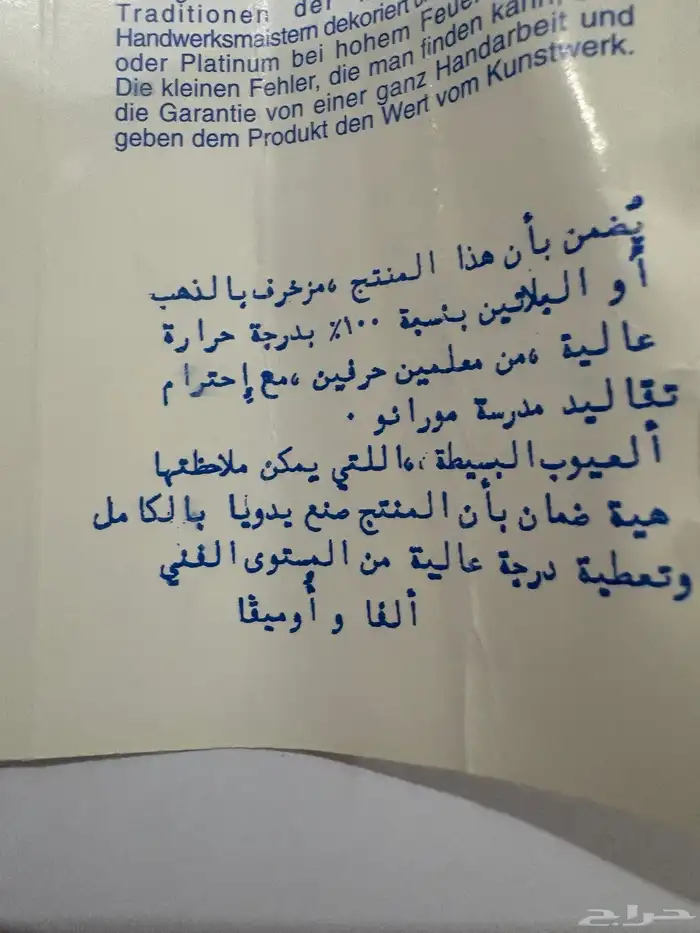 Traditionen der
Handwerksmaistern dekoriert
oder Platinum bei hohem Feuer
Die kleinen Fehler, die man finden kann,
die Garantie von einer ganz Handarbeit und
geben dem Produkt den Wert vom Kunstwerk.
يُضمن بأن هذا المنتج ،مزخرف بالذهب
أو البلاتين بنسبة ١٠٠٪ بدرجة حرارة
عالية ،من معلمين حرفين ،مع إحترام
تقاليد مدرسة مورانو .
ألعيوب البسيطة ،اللتي يمكن ملاحظتها
هية ضمان بأن المنتج صنع يدويا بالكامل
وتعطية درجة عالية من المستوى الفني
ألفا و أوميڤا
حراج